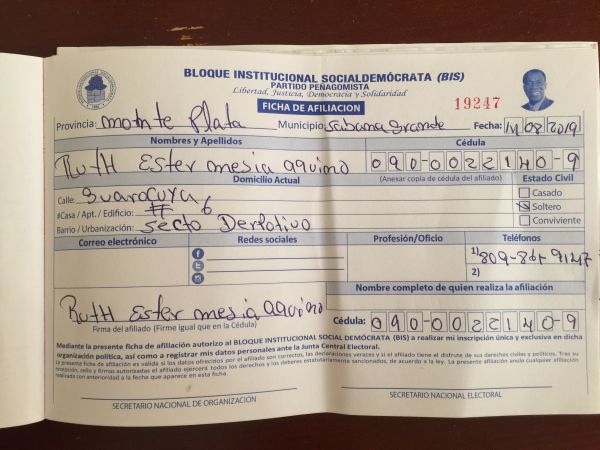 BLOQUE INSTITUCIONAL SOCIALDEMÓCRATA (BIS)
PARTIDO PEÑAGOMISTA
Libertad, Justicia, Democracia y Solidaridad
FICHA DE AFILIACION
19247
Provincia: monte Plata Municipio: Sabana Grande Fecha: 11/08/2019
Nombres y Apellidos Cédula
RutH Ester mesia aquino 090-0022140-9
Domicilio Actual (Anexar copia de cédula del afiliado) Estado Civil
Calle: Guarocuya Casado
#Casa / Apt. / Edificio: # 6 Soltero
Barrio / Urbanización: Secto Deportivo Conviviente
Correo electrónico Redes sociales Profesión/Oficio Teléfonos
1) 809-861-9147
2)
Nombre completo de quien realiza la afiliación
RutH Ester mesia aquino
Firma del afiliado (Firme igual que en la Cédula) Cédula: 090-0022140-9
Mediante la presente ficha de afiliación autorizo al BLOQUE INSTITUCIONAL SOCIAL DEMÓCRATA (BIS) a realizar mi inscripción única y exclusiva en dicha
organización política, así como a registrar mis datos personales ante la Junta Central Electoral.
la presente ficha de afiliación es valida si los datos ofrecidos por el afiliado son correctos, las declaraciones veraces y si el afiliado tiene el disfrute de sus derechos civiles y políticos. Tras su
recepción, sello y firmas autorizadas el afiliado ejercerá todos los derechos y los deberes estatutariamente sancionados, de acuerdo a la ley. La presente afiliación anula cualquier afiliación
realizada con anterioridad a la fecha que aparece en esta ficha.
SECRETARIO NACIONAL DE ORGANIZACIÓN SECRETARIO NACIONAL ELECTORAL